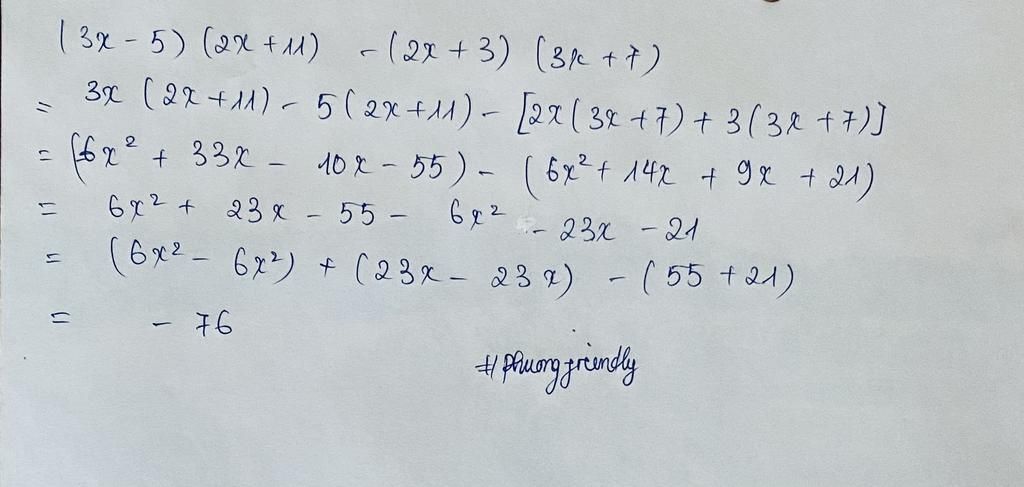 (3x - 5) (2x + 11) - (2x + 3) (3x + 7)
= 3x (2x + 11) - 5 (2x + 11) - [2x (3x + 7) + 3 (3x + 7)]
= (6x² + 33x - 10x - 55) - (6x² + 14x + 9x + 21)
= 6x² + 23x - 55 - 6x² - 23x - 21
= (6x² - 6x²) + (23x - 23x) - (55 + 21)
= - 76
#phuongfriendly